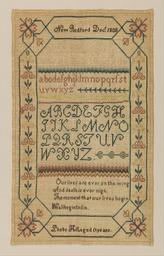 New Bedford Dec.
abcdefghijklmnopqrst
uvwxyz
ABCDEFGH
IJKLMNO
PQRSTUV
WXYZ
Our lives are ever on the wing
And death is ever nigh.
The moment that our lives begin
We all begin to die.
Aged 6 years.